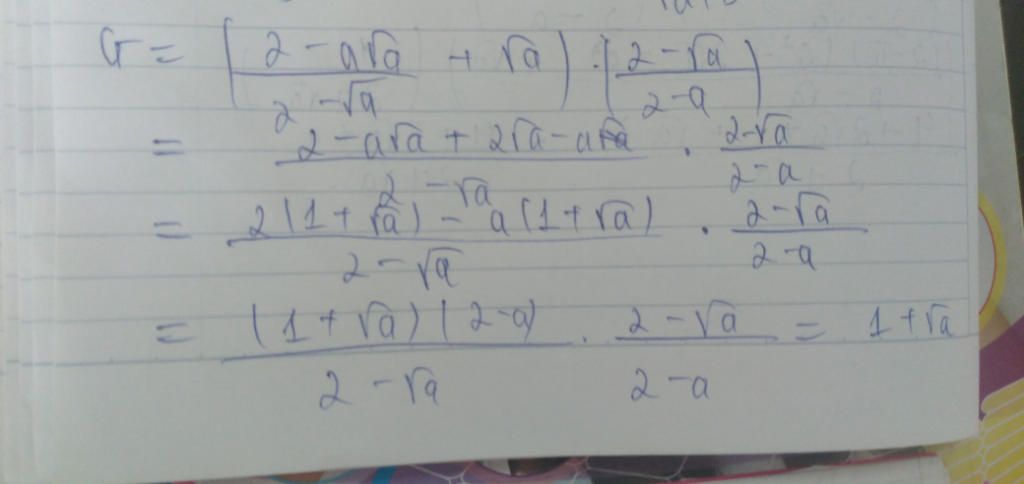 G = ( (2 - a√a)/(2 - √a) + √a ) · ( (2 - √a)/(2 - a) )
= (2 - a√a + 2√a - a)/(2 - √a) · (2 - √a)/(2 - a)
= (2(1 + √a) - a(1 + √a))/(2 - √a) · (2 - √a)/(2 - a)
= ((1 + √a)(2 - a))/(2 - √a) · (2 - √a)/(2 - a) = 1 + √a